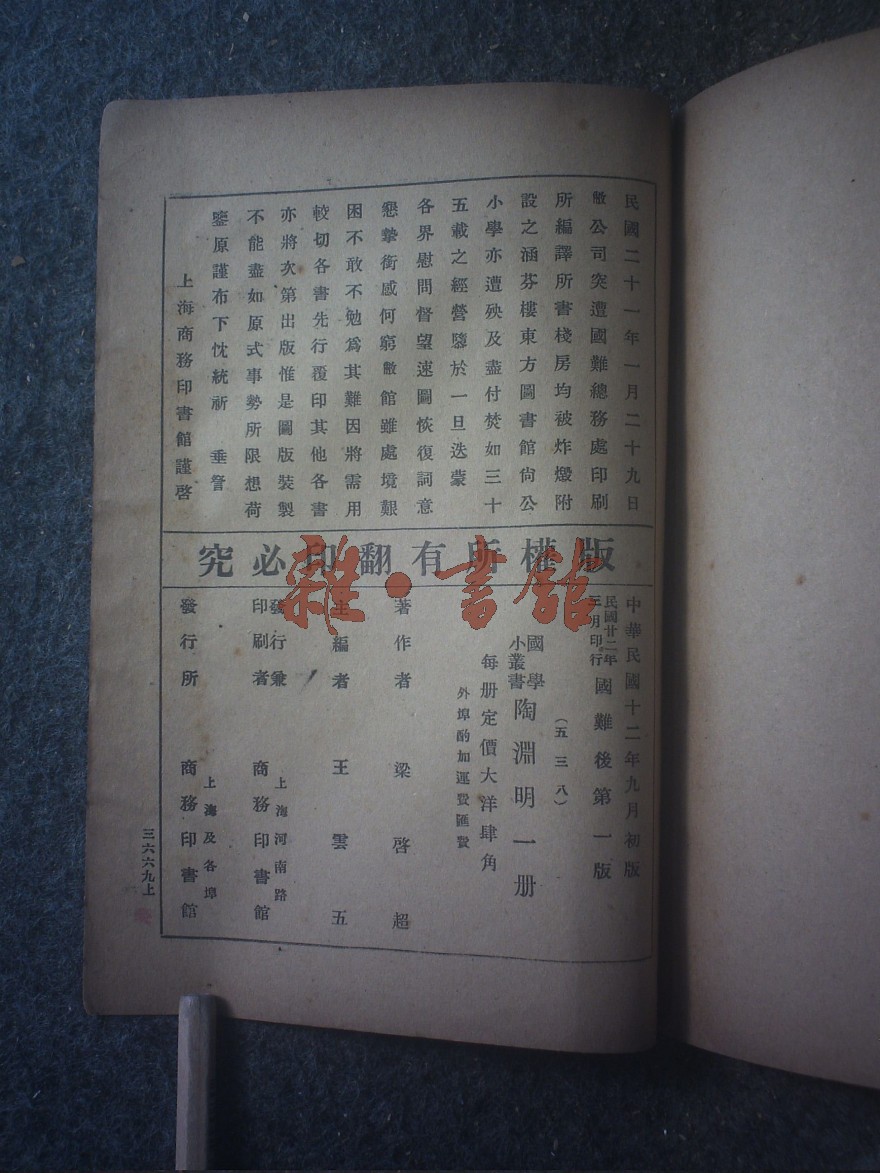 民國二十一年一月二十九日
敝公司突遭國難總務處印刷
所編譯所書棧房均被炸燬附
設之涵芬樓東方圖書館尚公
小學亦遭殃及盡付焚如三十
五載之經營隳於一旦迭蒙
各界慰問督望速圖恢復詞意
懇摯銜感何窮敝館雖處境艱
困不敢不勉爲其難因將需用
較切各書先行覆印其他各書
亦將次第出版惟是圖版裝製
不能盡如原式事勢所限想荷
鑒原謹布下忱統祈 垂詧
上海商務印書館謹啓
究必印翻有所權版
雜·書館
中華民國十二年九月初版
民國廿二年
三月印行
國難後第一版
(五三八)
國學
小叢書
陶淵明一册
每册定價大洋肆角
外埠酌加運費匯費
著作者 梁啓超
主編者 王雲五
發行兼
印刷者
上海河南路
商務印書館
發行所
上海及各埠
商務印書館
三六六九上